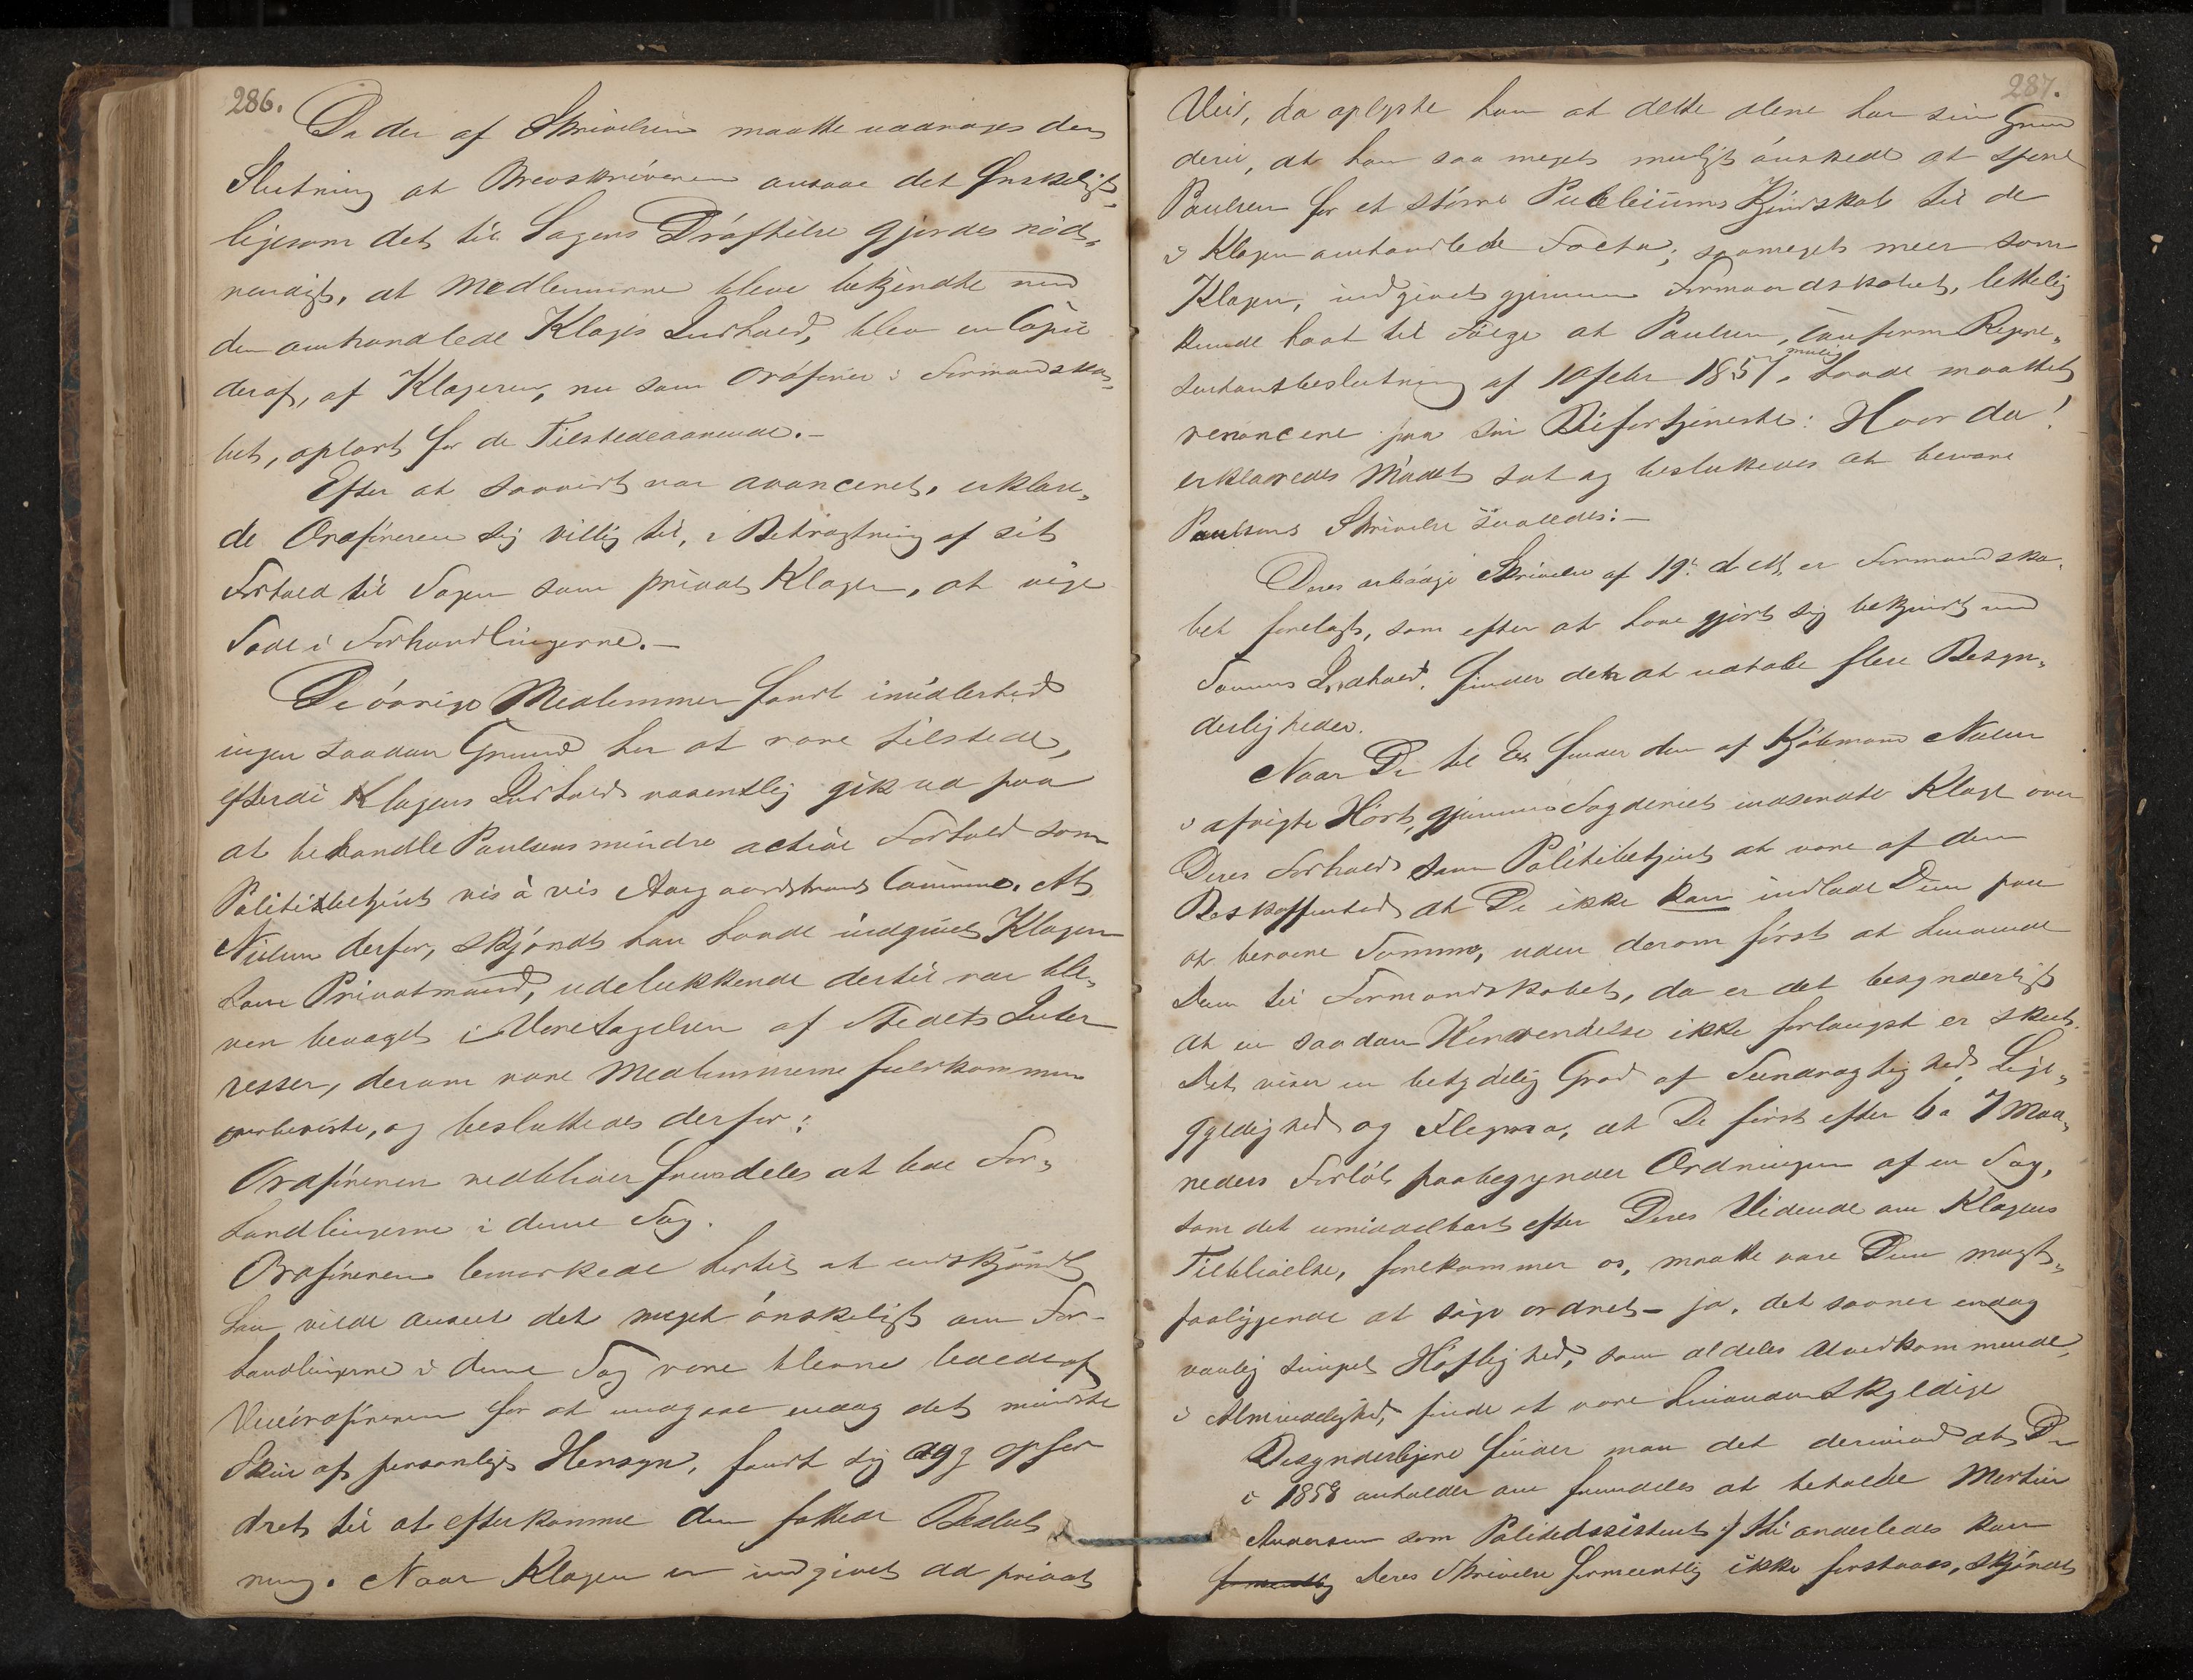 286.
Da der af Skrivelsen maatte uddrages den
Slutning at Brevskriveren ansaae det Ønskeligt,
ligesom det til Sagens Dröftelse gjordes nöd„
vendigt, at Medlemmerne bleve bekjendte med
den omhandlede Klages Indhold, blev en Copie
deraf, af Klageren, nu som Ordförer i Formandska„
bet, oplæst for de Tilstedeværende.–
Efter at saavidt var avanceret, erklære„
de Ordföreren sig villig til, i Betragtning af sit
Forhold til Sagen som privat Klager, at vige
Sæde i Forhandlingerne.–
De övrige Medlemmer fandt imidlertid
ingen saadan Grund her at være tilstede,
efterdi Klagens Indhold væsentlig gik ud paa
at behandle Paulsens mindre active Forhold som
Politibetjent vis à vis Aasgaardstrands Commune. At
Nielsen derfor, skjöndt han havde indgivet Klagen
som Privatmand, udelukkende dertil var ble„
ven bevæget i Varetagelsen af Stedets Inter
resser, derom vare Medlemmerne fuldkommen
overbeviste, og besluttedes derfor:
Ordföreren vedbliver fremdeles at lede For„
handlingerne i denne Sag.
Ordföreren bemærkede hertil at endskjöndt
han vilde anseet det meget önskeligt om For-
handlingerne i denne Sag vare blevne ledede af
Viceordföreren for at undgaae endog det mindste
Skin af personligt Hensyn, fandt sig dog opfor
dret til at efterkomme den fattede Beslut
ning. Naar Klagen er indgivet ad privat
287.
Veie, da oplyste han at dette alene har sin Grund
deri, at han saa meget muligt önskede at spare
Paulsen for et större Publicums Kjendskab til de
i Klagen omhandlede Facta; saameget meer som
Klagen, indgivet gjennem Formandskabet, lettelig
kunde havt til Fölge at Paulsen, conform Repræ„
sentantbeslutning af 10 Febr 1857, mulig havde maattet
renoncere paa sin Bifortjeneste: Hvorda!
erklæredes Mödet sat og besluttedes at besvare
Paulsens Skrivelse saaledes:–
Deres ærbödige Skrivelse af 19. d. M. er Formandska„
bet forelagt, som efter at have gjort sig bekjendt med
Sammes Indhold, finder den at udtale flere Besyn„
derligheder.
Naar De til Ex finder den af Kjöbmand Nielsen
i afvigte Höst, gjennem Fogderiet indsendte Klage over
Deres Forhold som Politibetjent at være af den
Beskaffenhed at De ikke kan indlade Dem paa
at besvare Samme, uden derom först at henvende
Dem til Formandskabet, da er det besynderligt
at en saadan Henvendelse ikke forlængst er skeet.
Det viser en betydelig Grad af Seendrægtighed, Lige„
gyldighed og Flegma, at De först efter 6 a 7 Maa„
neders Forlöb paabegynder Ordningen af en Sag,
som det umiddelbart efter Deres Vidende om Klagens
Tilblivelse, forekommer os, maatte være Dem magt„
paaliggende at söge ordnet – ja, det savner endog
vanlig simpel Höflighed, som aldeles Uvedkommende
i Almindelighed, finde at være hinanden skyldige
Besynderligere finder man det derimod at De
i 1858 anholder om fremdeles at beholde Martin
Andersen som Politiassistent :/ thi anderledes kan
formentlig Deres Skrivelse formeentlig ikke forstaaes, skjöndt